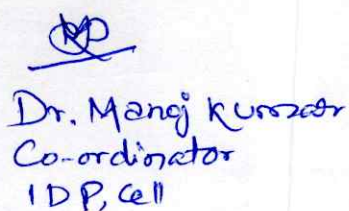 Dr. Manoj Kumar
Co-ordinator
IDP, Cell